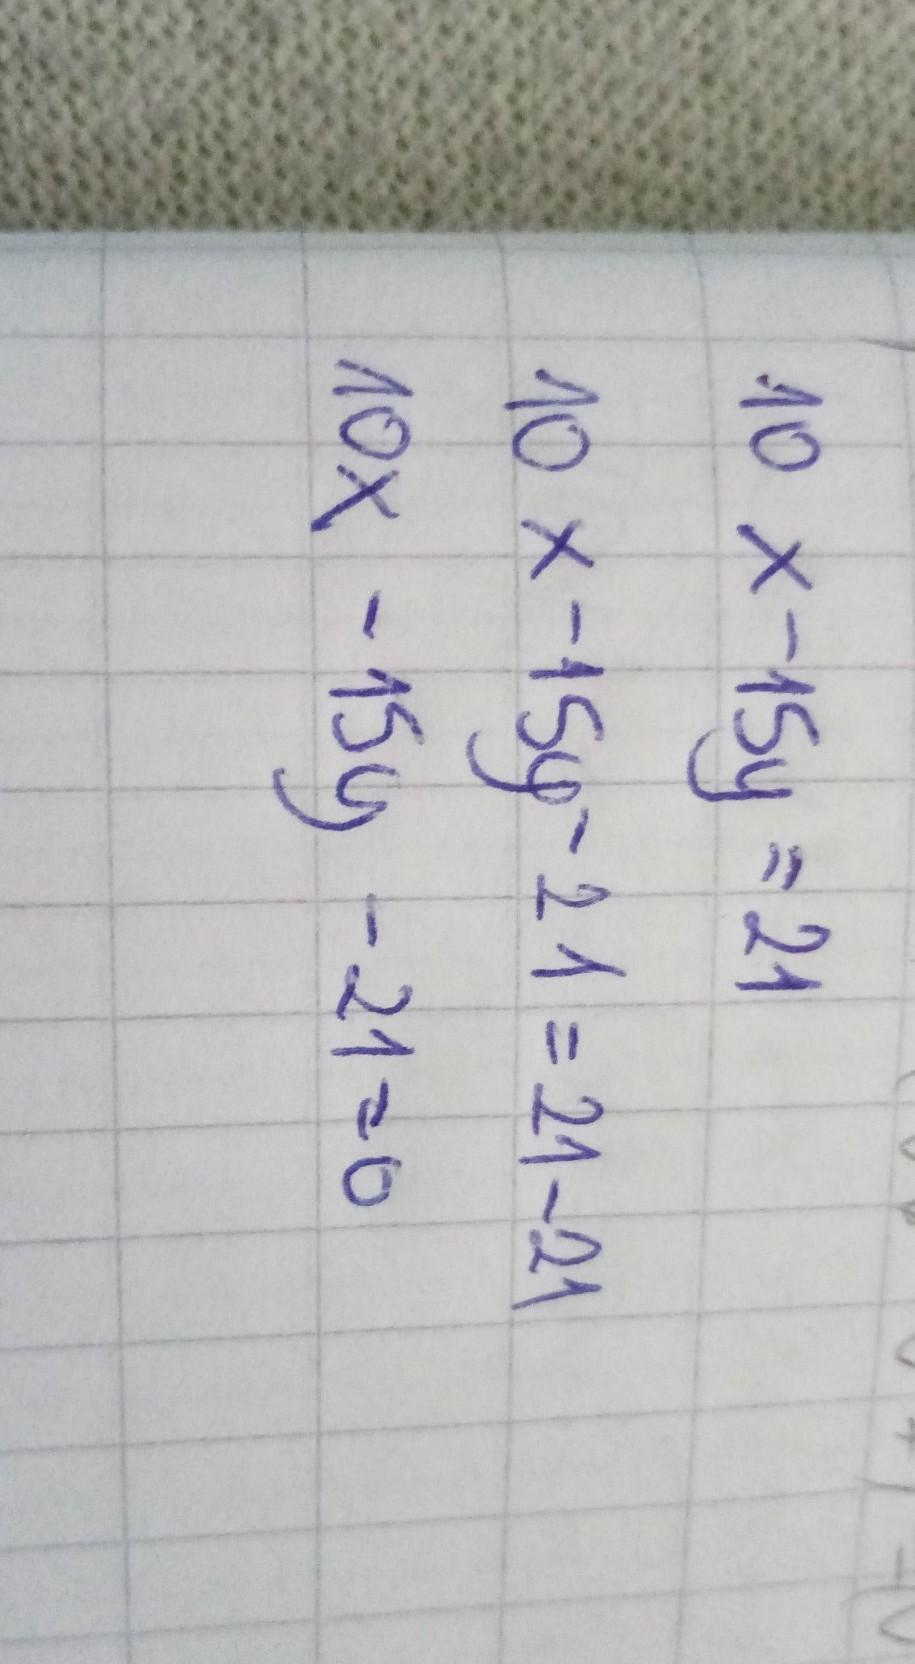 10 x - 15y = 21
10 x - 15y - 21 = 21 - 21
10x - 15y - 21 = 0